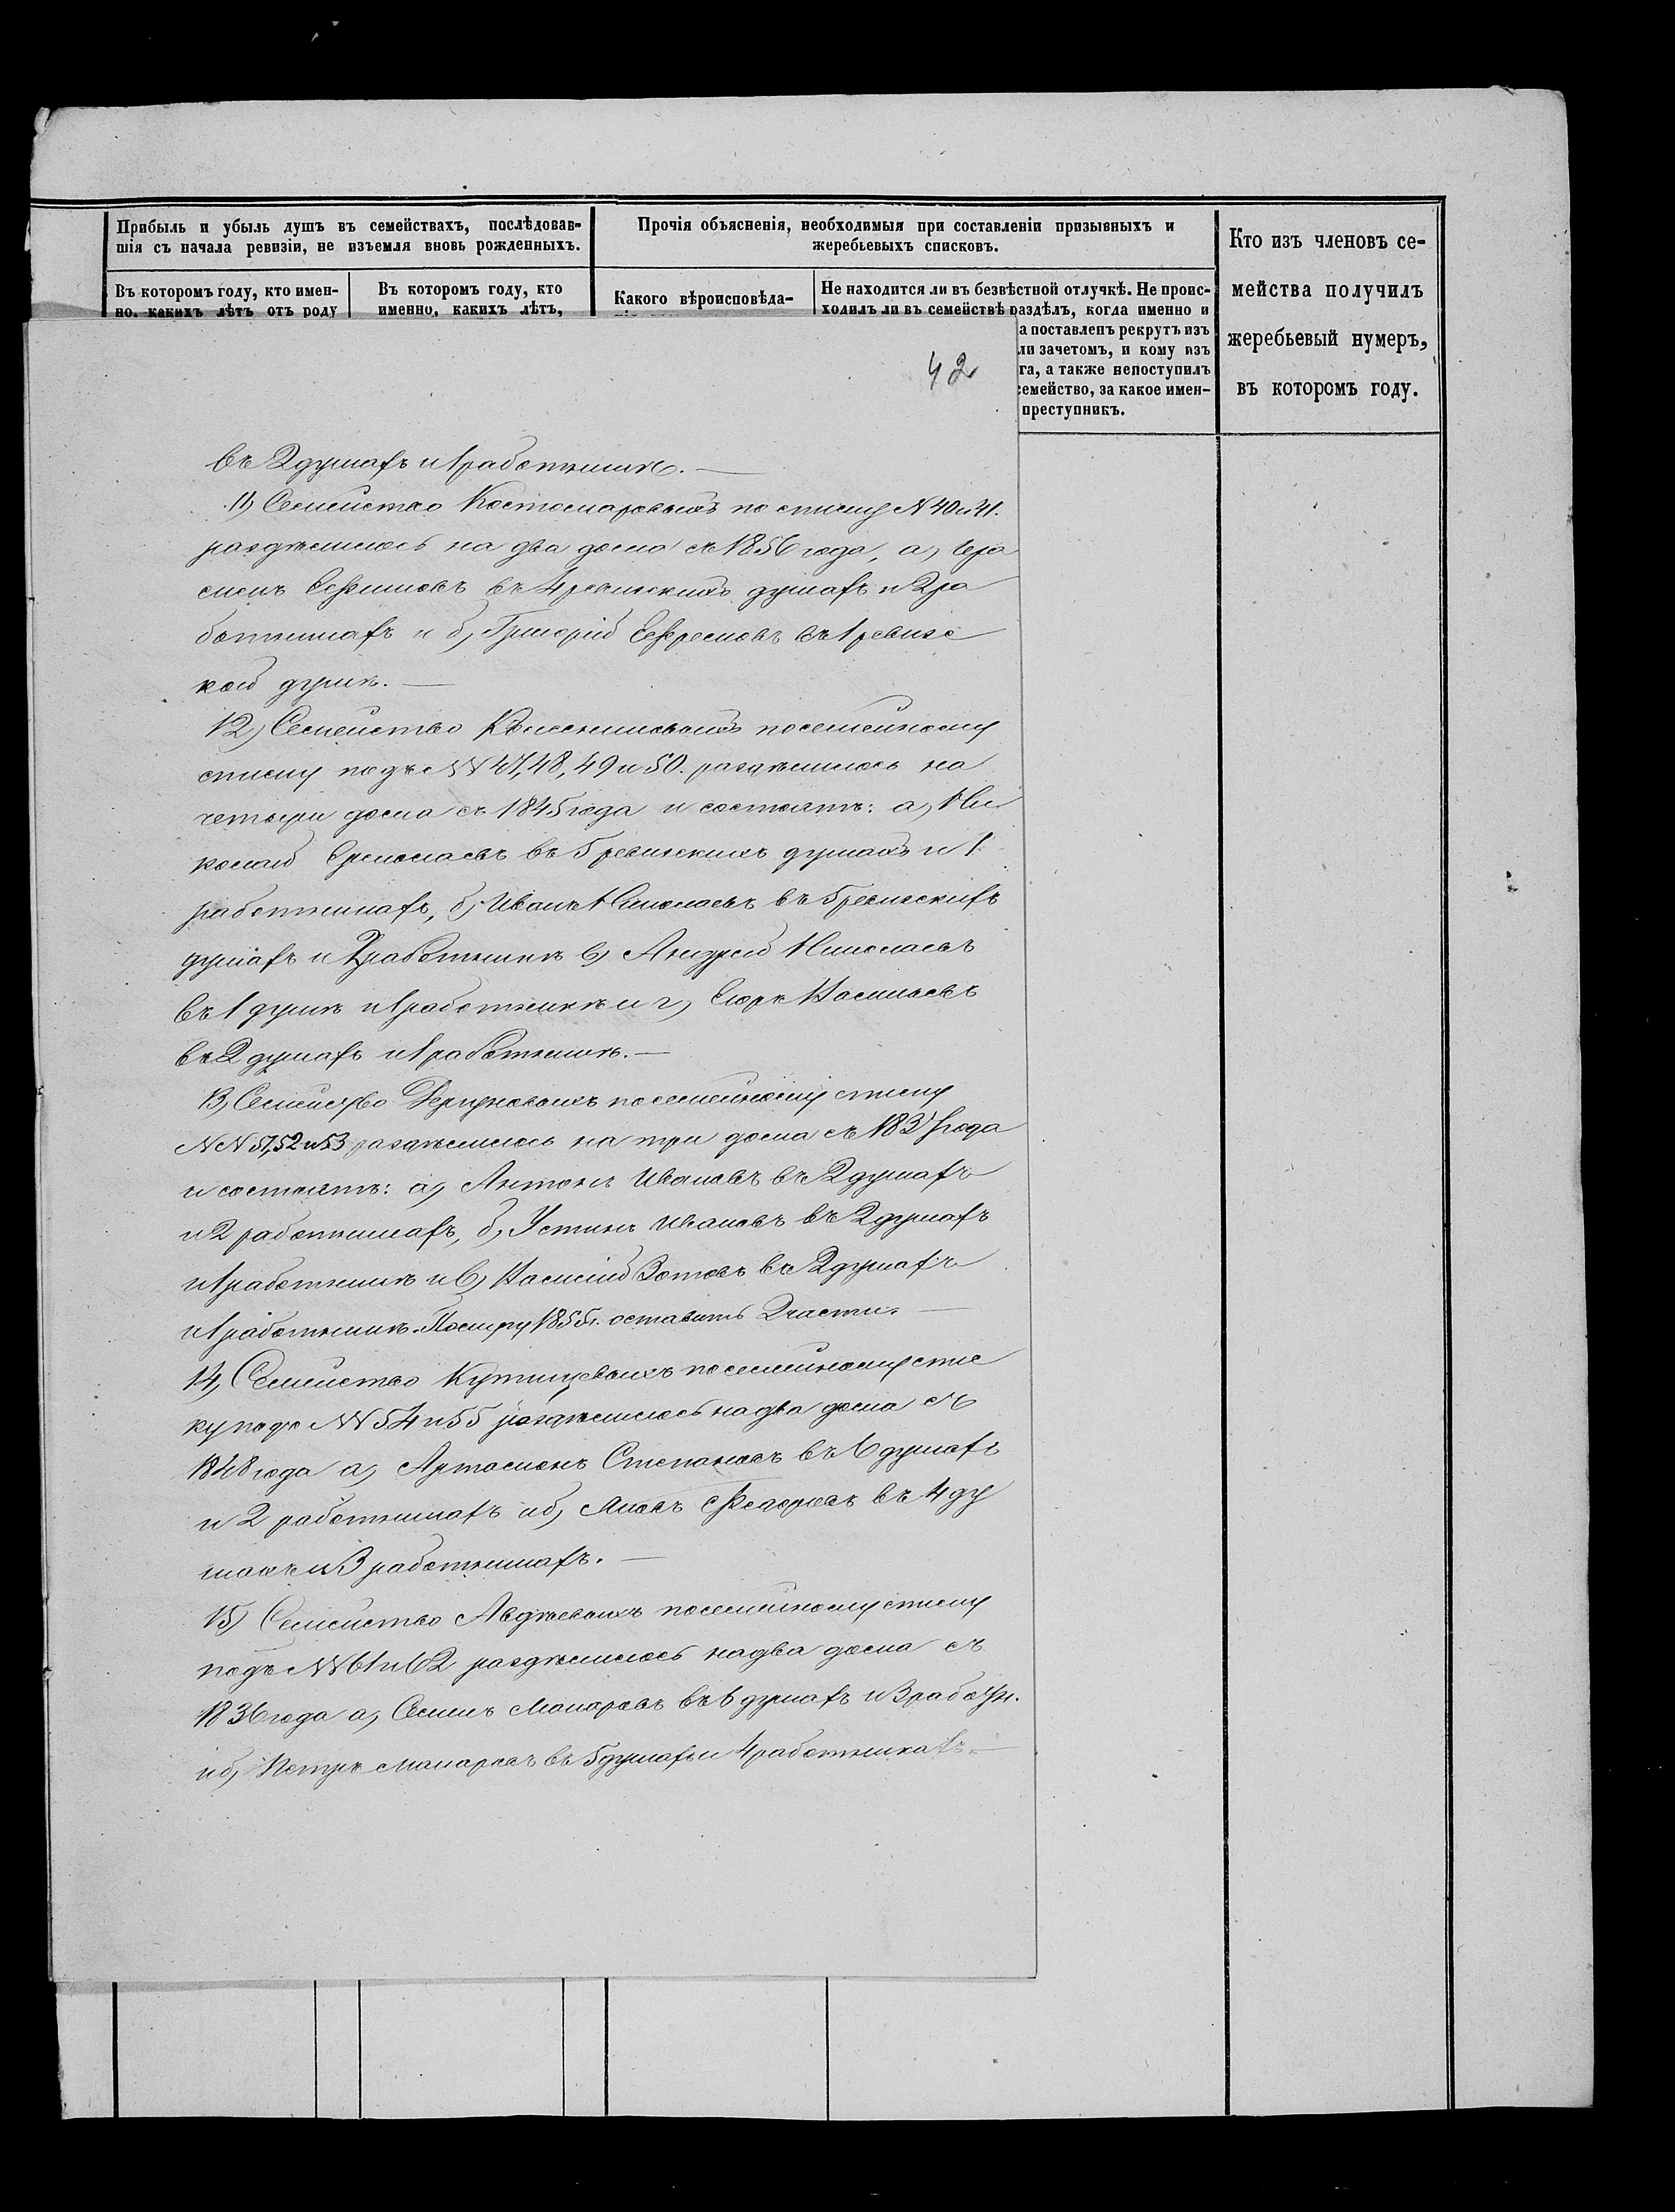 Прибыль и убыль душъ въ семействахъ, послѣдовав-
шія съ начала ревизіи, не изъемля вновь рожденныхъ.
Прочія объясненія, необходимыя при составленіи призывныхъ и
жеребьевыхъ списковъ.
Кто изъ членовъ се-
мейства получилъ
жеребьевый нумеръ,
въ которомъ году.
Въ которомъ году, кто имен-
но, какихъ лѣтъ отъ роду
Въ которомъ году, кто
именно, какихъ лѣтъ,
Какого вѣроисповѣда-
Не находится ли въ безвѣстной отлучкѣ. Не проис-
ходилъ ли въ семействѣ раздѣлъ, когда именно и
а поставленъ рекрутъ изъ
ли зачетомъ, и кому изъ
га, а также непоступилъ
семейство, за какое имен-
преступникъ.
42
въ 2 душахъ и 1 работникѣ. —
11) Семейство Костомаровыхъ по списку № 40 и 41.
раздѣлилось на два дома съ 1856 года, а) Гера
симъ въ 4 ревизскихъ душахъ и 2 ра
ботникахъ и б) Григорій Ефремовъ въ 1 ревизс
кой душѣ. —
12) Семейство посемейному
списку подъ №№ 47, 48, 49 и 50. раздѣлилось на
четыри дома съ 1845 года и состоятъ: а) Ни
колай Ермолаевъ въ 5 ревизскихъ душахъ и 1
работникахъ, б) Иванъ Николаевъ въ 5 ревизскихъ
душахъ и 2 работникѣ в) Андрей Николаевъ
въ 1 душѣ и 1 работникѣ и г) Егоръ Васильевъ
въ 2 душахъ и 1 работникѣ. —
13) Семейство посемейному списку
№№ 51, 52 и 53 раздѣлилось на три дома съ года
и состоятъ: а) Антонъ Ивановъ въ 2 душахъ
и 2 работникахъ, б) Устинъ Ивановъ въ 2 душахъ
и 1 работникѣ и в) Василій Зотовъ въ 2 душахъ
и 1 работникѣ. 1855 г. оставить 2 части. —
14) Семейство посемейному спис
ку подъ №№ 54 и 55 раздѣлилось на два дома съ
1848 года а) Артамонъ Степановъ въ 6 душахъ
и 2 работникахъ и б) Яковъ Федоровъ въ 4 ду
шахъ и 3 работникахъ. —
15) Семейство Авдѣевыхъ посемейному списку
подъ №№ 61 и 62 раздѣлилось на два дома съ
1836 года а) Семенъ Макаровъ въ 6 душахъ и 3 работн.
и б) Петръ Макаровъ въ 5 душахъ и 4 работникахъ. —